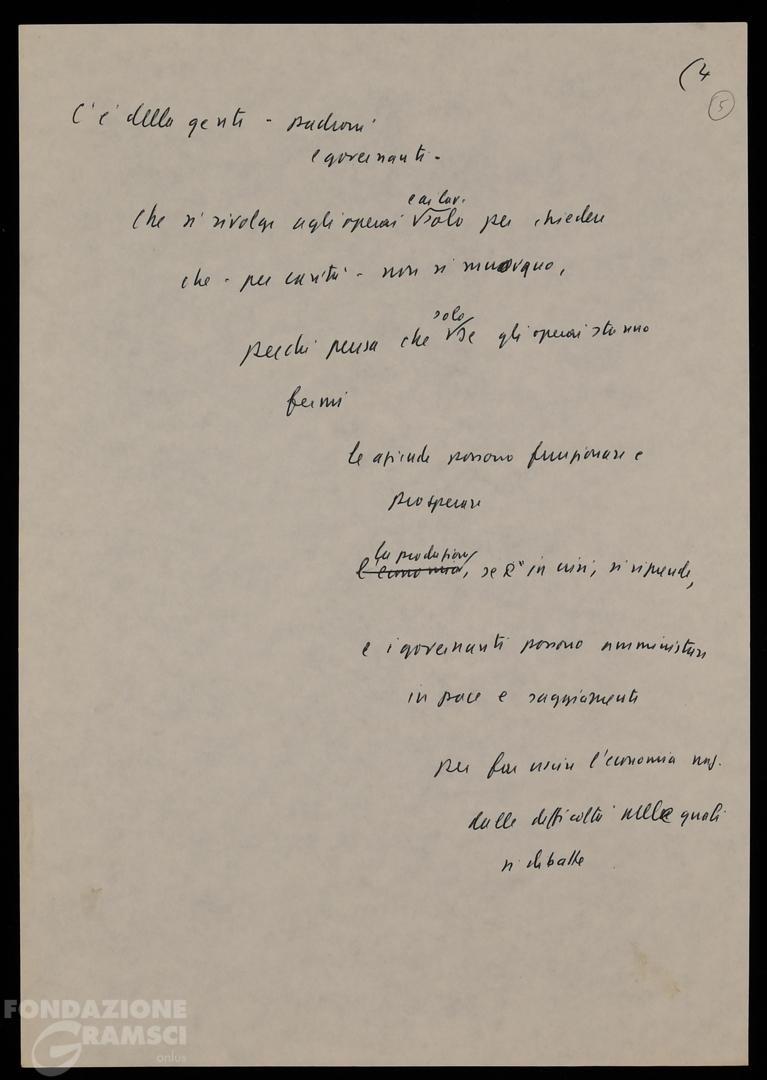 (4
5
C'è della gente - padroni
e governanti -
che si rivolge agli operai e ai lav. solo per chiedere
che - per carità - non si muovano,
perché pensa che solo se gli operai stanno
fermi
le aziende possono funzionare e
prosperare
la produzione
l'economia, se è in crisi, si riprende,
e i governanti possono amministrare
in pace e saggiamente
per far uscire l'economia naz.
dalle difficoltà nelle quali
si dibatte
FONDAZIONE
GRAMSCI
onlus